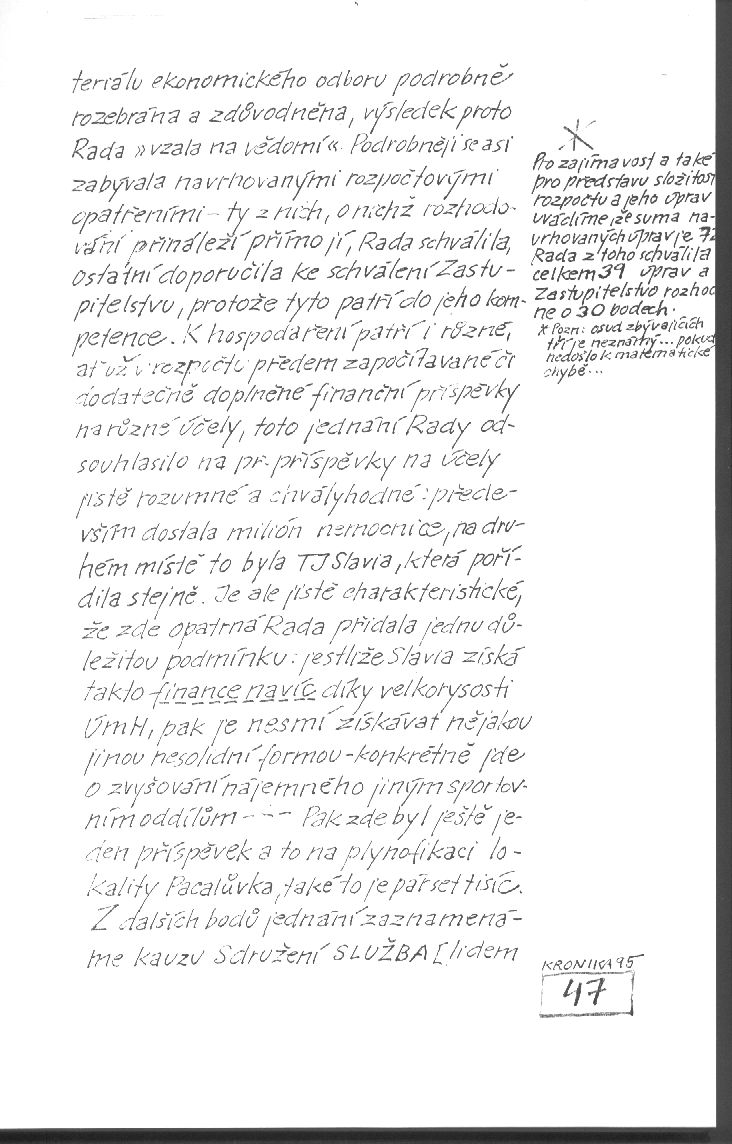 teriálu ekonomického odboru podrobně
rozebrána a zdůvodněna, výsledek proto
Rada »vzala na vědomí«. Podrobněji se asi
zabývala navrhovanými rozpočtovými
opatřeními - ty z nich, o nichž rozhodo-
vání přináleží přímo jí, Rada schválila,
ostatní doporučila ke schválení Zastu-
pitelstvu, protože tyto patří do jeho kom-
petence. K hospodaření patří i různé,
ať už v rozpočtu předem započítavané či
dodatečně doplněné finanční příspěvky
na různé účely, toto jednání Rady od-
souhlasilo na př. příspěvky na účely
jistě rozumné a chvályhodné: přede-
vším dostala milión nemocnice, na dru-
hém místě to byla TJ Slavia, která poří-
dila stejně. Je ale jistě charakteristické,
že zde opatrná Rada přidala jednu dů-
ležitou podmínku: jestliže Slavia získá
takto finance navíc díky velkorysosti
ÚmH, pak je nesmí získávat nějakou
jinou nesolidní formou - konkrétně jde
o zvyšování nájemného jiným sportov-
ním oddílům - - - Pak zde byl ještě je-
den příspěvek a to na plynofikaci lo-
kality Pacalůvka, také to je pár set tisíc.
Z dalších bodů jednání zaznamená-
me kauzu Sdružení SLUŽBA [lidem
Pro zajímavost a také
pro představu složitost
rozpočtu a jeho úprav
uvádíme, že suma na-
vrhovaných úprav je 72
Rada z toho schválila
celkem 39 úprav a
Zastupitelstvo rozhod
ne o 30 bodech.
* Pozn: osud zbývajících
tří je neznámý... pokud
nedošlo k matematické
chybě...
KRONIKA 95
47